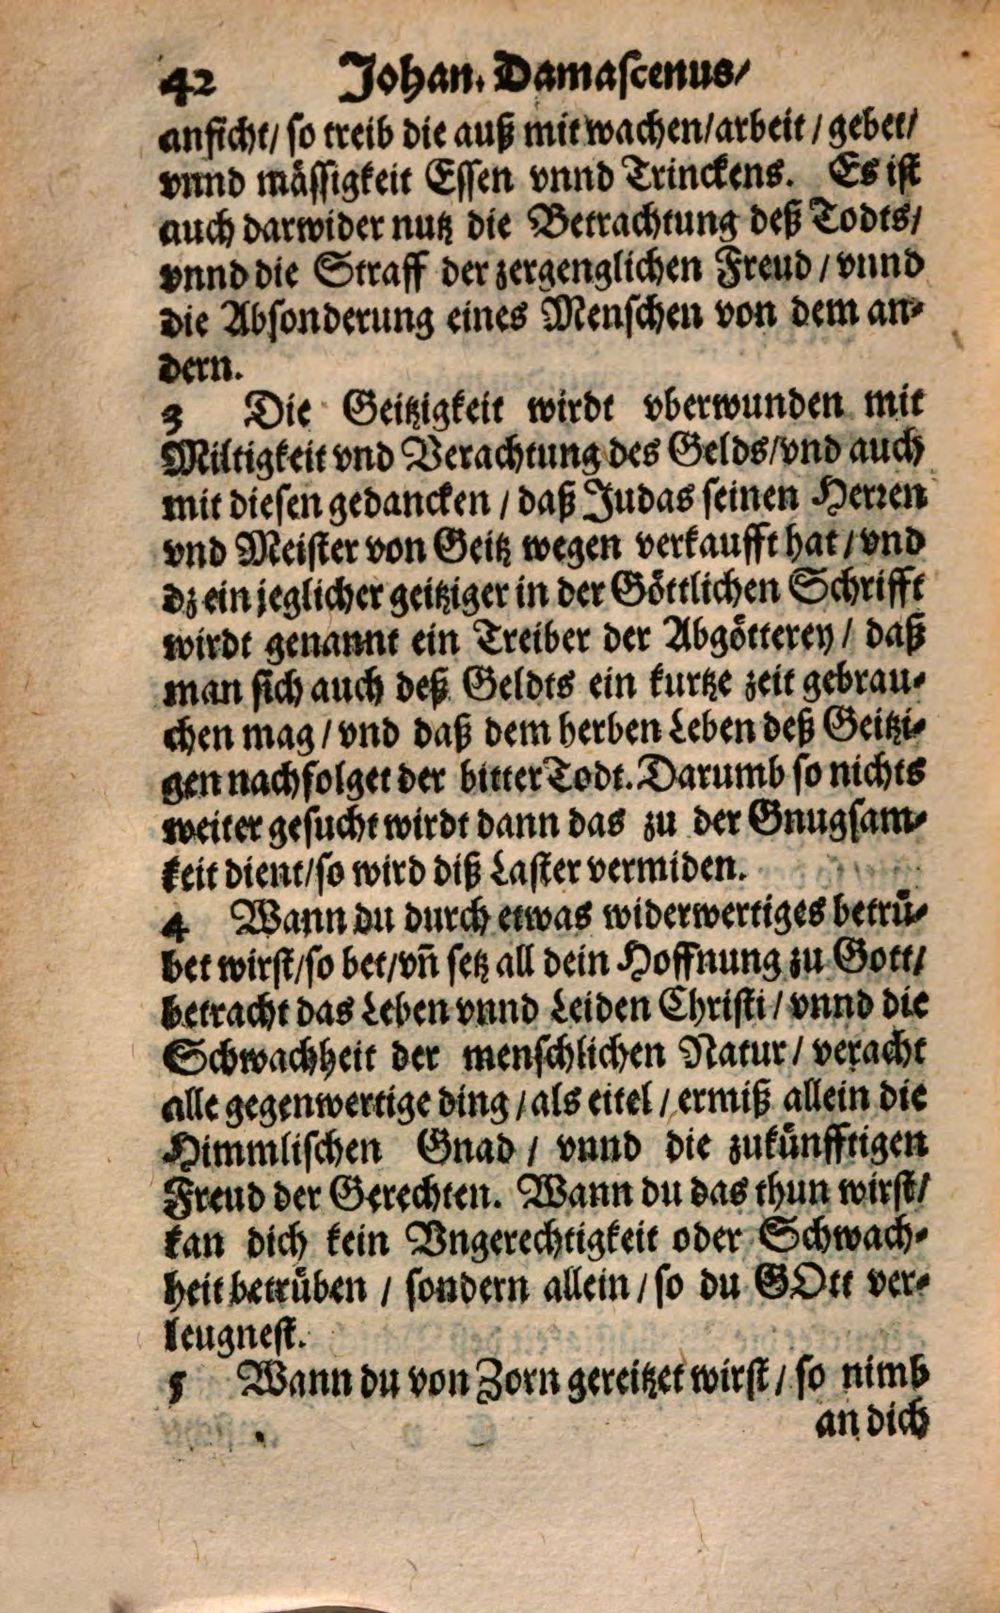 42 Johan. Damascenus/
anficht/ so treib die auß mit wachen/arbeit / gebet/
vnnd mässigkeit Essen vnnd Trinckens. Es ist
auch darwider nutz die Betrachtung deß Todts/
vnnd die Straff der zergenglichen Freud / vnnd
die Absonderung eines Menschen von dem an-
dern.
3 Die Geitzigkeit wirdt vberwunden mit
Miltigkeit vnd Verachtung des Gelds/vnd auch
mit diesen gedancken / daß Judas seinen Herren
vnd Meister von Geitz wegen verkaufft hat / vnd
dz ein jeglicher geitziger in der Göttlichen Schrifft
wirdt genannt ein Treiber der Abgötterey / daß
man sich auch deß Geldts ein kurtze zeit gebrau-
chen mag / vnd daß dem herben Leben deß Geitzi-
gen nachfolget der bitter Todt. Darumb so nichts
weiter gesucht wirdt dann das zu der Gnugsam-
keit dient/so wird diß Laster vermiden.
4 Wann du durch etwas widerwertiges betrü-
bet wirst/so bet/vñ setz all dein Hoffnung zu Gott/
betracht das Leben vnnd Leiden Christi / vnnd die
Schwachheit der menschlichen Natur / veracht
alle gegenwertige ding / als eitel / ermiß allein die
Himmlischen Gnad / vnnd die zukünfftigen
Freud der Gerechten. Wann du das thun wirst/
kan dich kein Vngerechtigkeit oder Schwach-
heit betrüben / sondern allein / so du GOtt ver-
leugnest.
5 Wann du von Zorn gereitzet wirst / so nimb
an dich